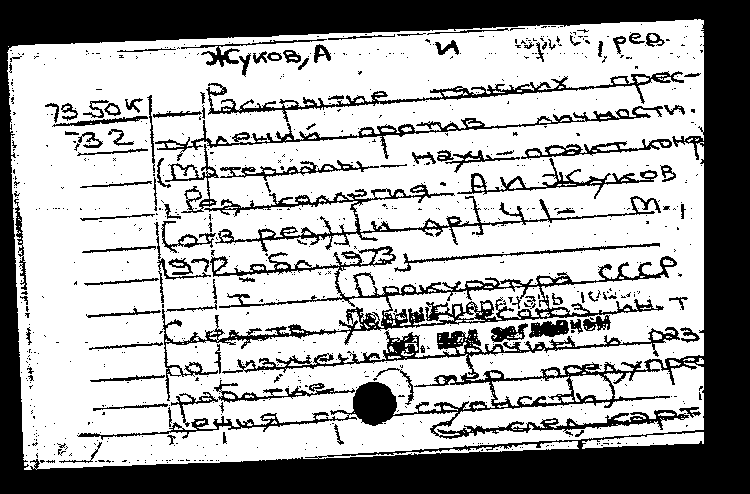 Жуков, А И юрист, ред.
73-50К Раскрытие тяжких прес-
732 туплений против личности.
(Материалы науч.-практ. конф
, Ред. коллегия. А.И Жуков
(отв ред), [и др] Ч 1- М.,
1972, обл. 1973,
т. (Прокуратура СССР.
Полный перечень
Следств ин. т
см. под заглавием
по изучению причин и раз-
работке мер предупреж
дения преступности).
См след карт